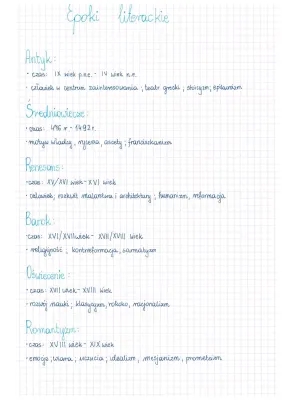 Epoki literackie
Antyk:
- czas: IX wiek p.n.e. - IV wiek n.e.
- człowiek w centrum zainteresowania; teatr grecki; stoicyzm; epikureizm
Średniowiecze:
- czas: 476 r - 1492 r.
- motywy władcy, rycerza, ascety; franciszkanizm
Renesans:
- czas: XV/XVI wiek - XVI wiek
- człowiek, rozkwit malarstwa i architektury; humanizm, reformacja
Barok:
- czas: XVI/XVII wiek - XVII/XVIII wiek
- religijność; kontrreformacja; sarmatyzm
Oświecenie:
- czas: XVII wiek - XVIII wiek
- rozwój nauki; klasycyzm, rokoko, racjonalizm
Romantyzm:
- czas: XVIII wiek - XIX wiek
- emocje, wiara, uczucia; idealizm, mesjanizm, prometeizm